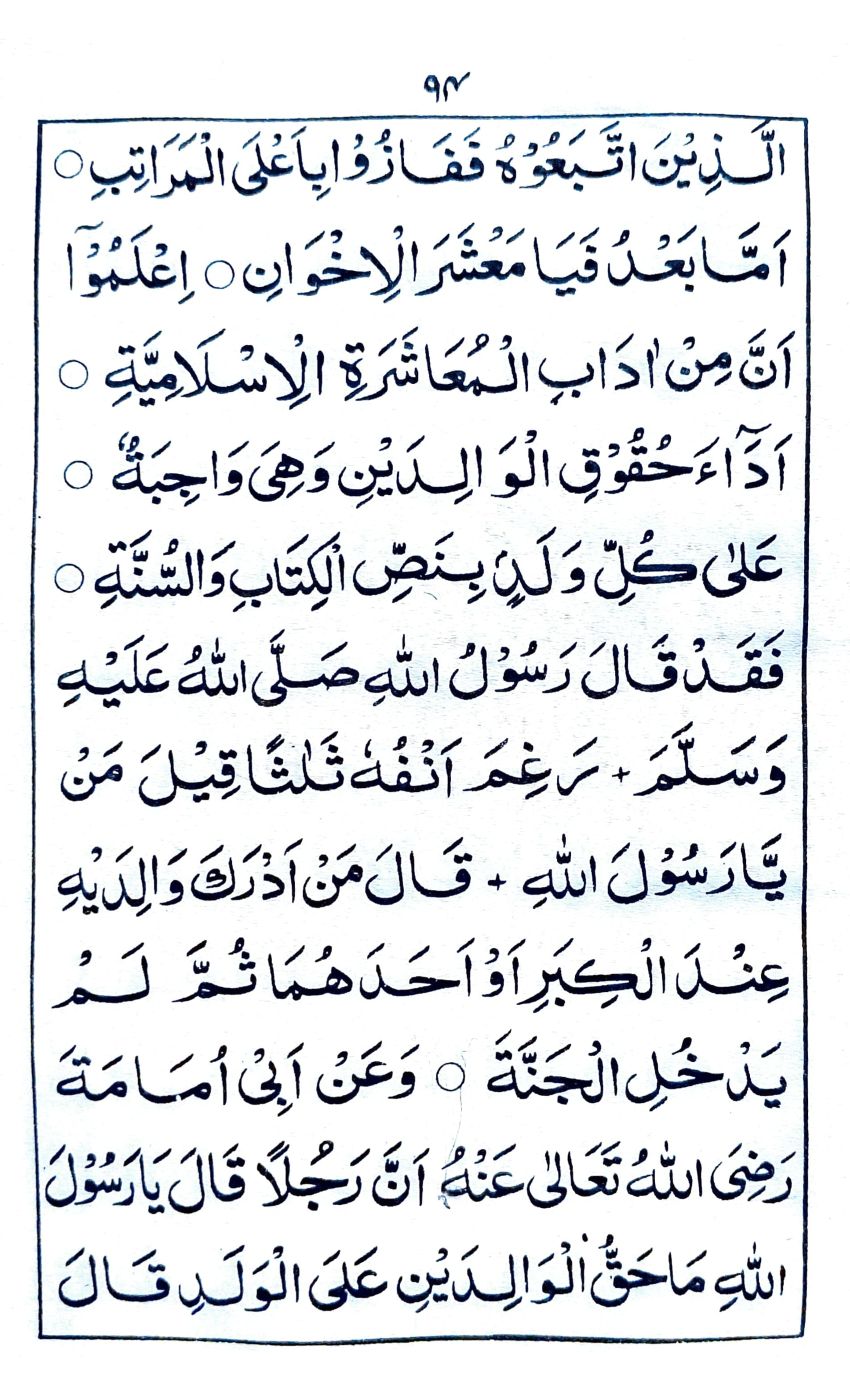 ۹۴
الَّذِيْنَ اتَّبَعُوْهُ فَفَازُوْا بِاَعْلَى الْمَرَاتِبِ ○
اَمَّا بَعْدُ فَيَا مَعْشَرَ الْاِخْوَانِ ○ اِعْلَمُوْٓا
اَنَّ مِنْ اٰدَابِ الْمُعَاشَرَةِ الْاِسْلَامِيَّةِ ○
اَدَآءَ حُقُوْقِ الْوَالِدَيْنِ وَهِيَ وَاجِبَةٌ ○
عَلٰى كُلِّ وَلَدٍ بِنَصِّ الْكِتَابِ وَالسُّنَّةِ ○
فَقَدْ قَالَ رَسُوْلُ اللهِ صَلَّى اللهُ عَلَيْهِ
وَسَلَّمَ + رَغِمَ اَنْفُهٗ ثَلٰثًا قِيْلَ مَنْ
يَّا رَسُوْلَ اللهِ + قَالَ مَنْ اَدْرَكَ وَالِدَيْهِ
عِنْدَ الْكِبَرِ اَوْ اَحَدَهُمَا ثُمَّ لَمْ
يَدْخُلِ الْجَنَّةَ ○ وَعَنْ اَبِيْ اُمَامَةَ
رَضِيَ اللهُ تَعَالٰى عَنْهُ اَنَّ رَجُلًا قَالَ يَا رَسُوْلَ
اللهِ مَا حَقُّ الْوَالِدَيْنِ عَلَى الْوَلَدِ قَالَ